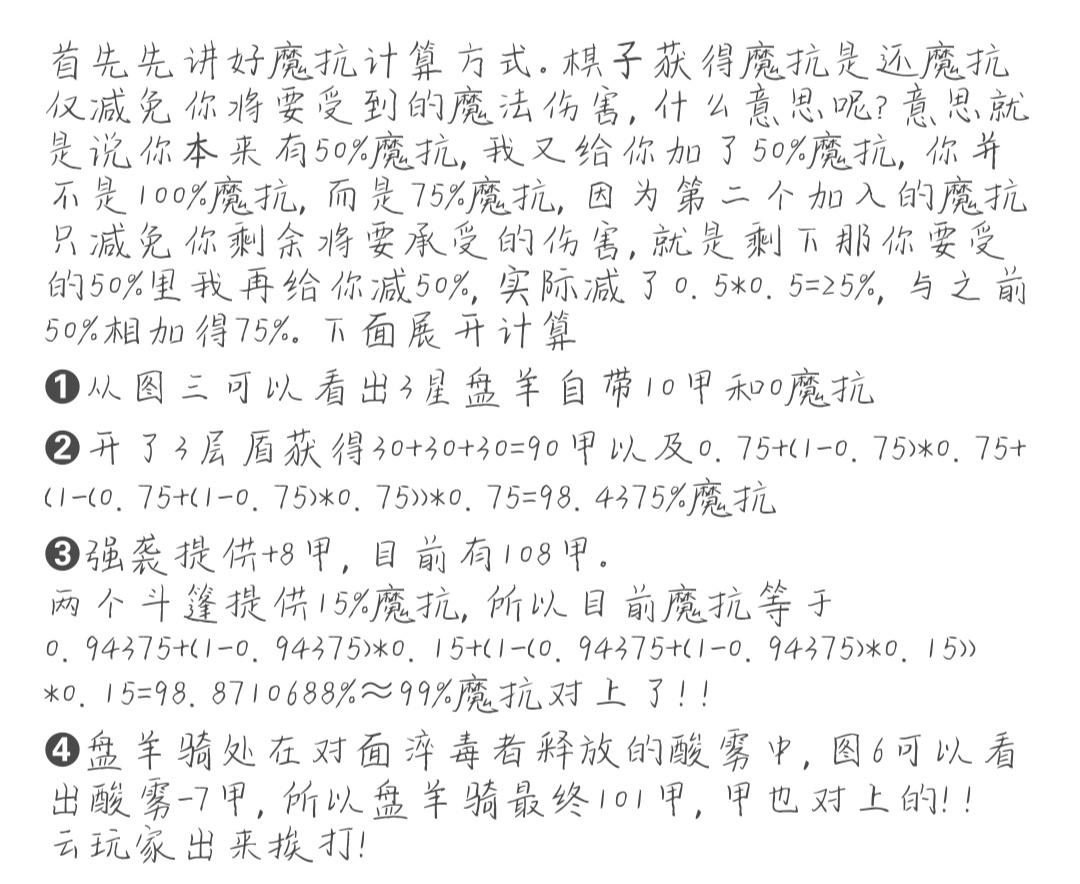 首先先讲好魔抗计算方式。棋子获得魔抗是还魔抗
仅减免你将要受到的魔法伤害,什么意思呢?意思就
是说你本来有50%魔抗,我又给你加了50%魔抗,你并
不是100%魔抗,而是75%魔抗,因为第二个加入的魔抗
只减免你剩余将要承受的伤害,就是剩下那你要受
的50%里我再给你减50%,实际减了0.5*0.5=25%,与之前
50%相加得75%。下面展开计算
❶从图三可以看出3星盘羊自带10甲和0魔抗
❷开了3层盾获得30+30+30=90甲以及0.75+(1-0.75)*0.75+
(1-(0.75+(1-0.75)*0.75))*0.75=98.4375%魔抗
❸强袭提供+8甲,目前有108甲。
两个斗篷提供15%魔抗,所以目前魔抗等于
0.94375+(1-0.94375)*0.15+(1-(0.94375+(1-0.94375)*0.15))
*0.15=98.8710688%≈99%魔抗对上了!!
❹盘羊骑处在对面淬毒者释放的酸雾中,图6可以看
出酸雾-7甲,所以盘羊骑最终101甲,甲也对上的!!
云玩家出来挨打!